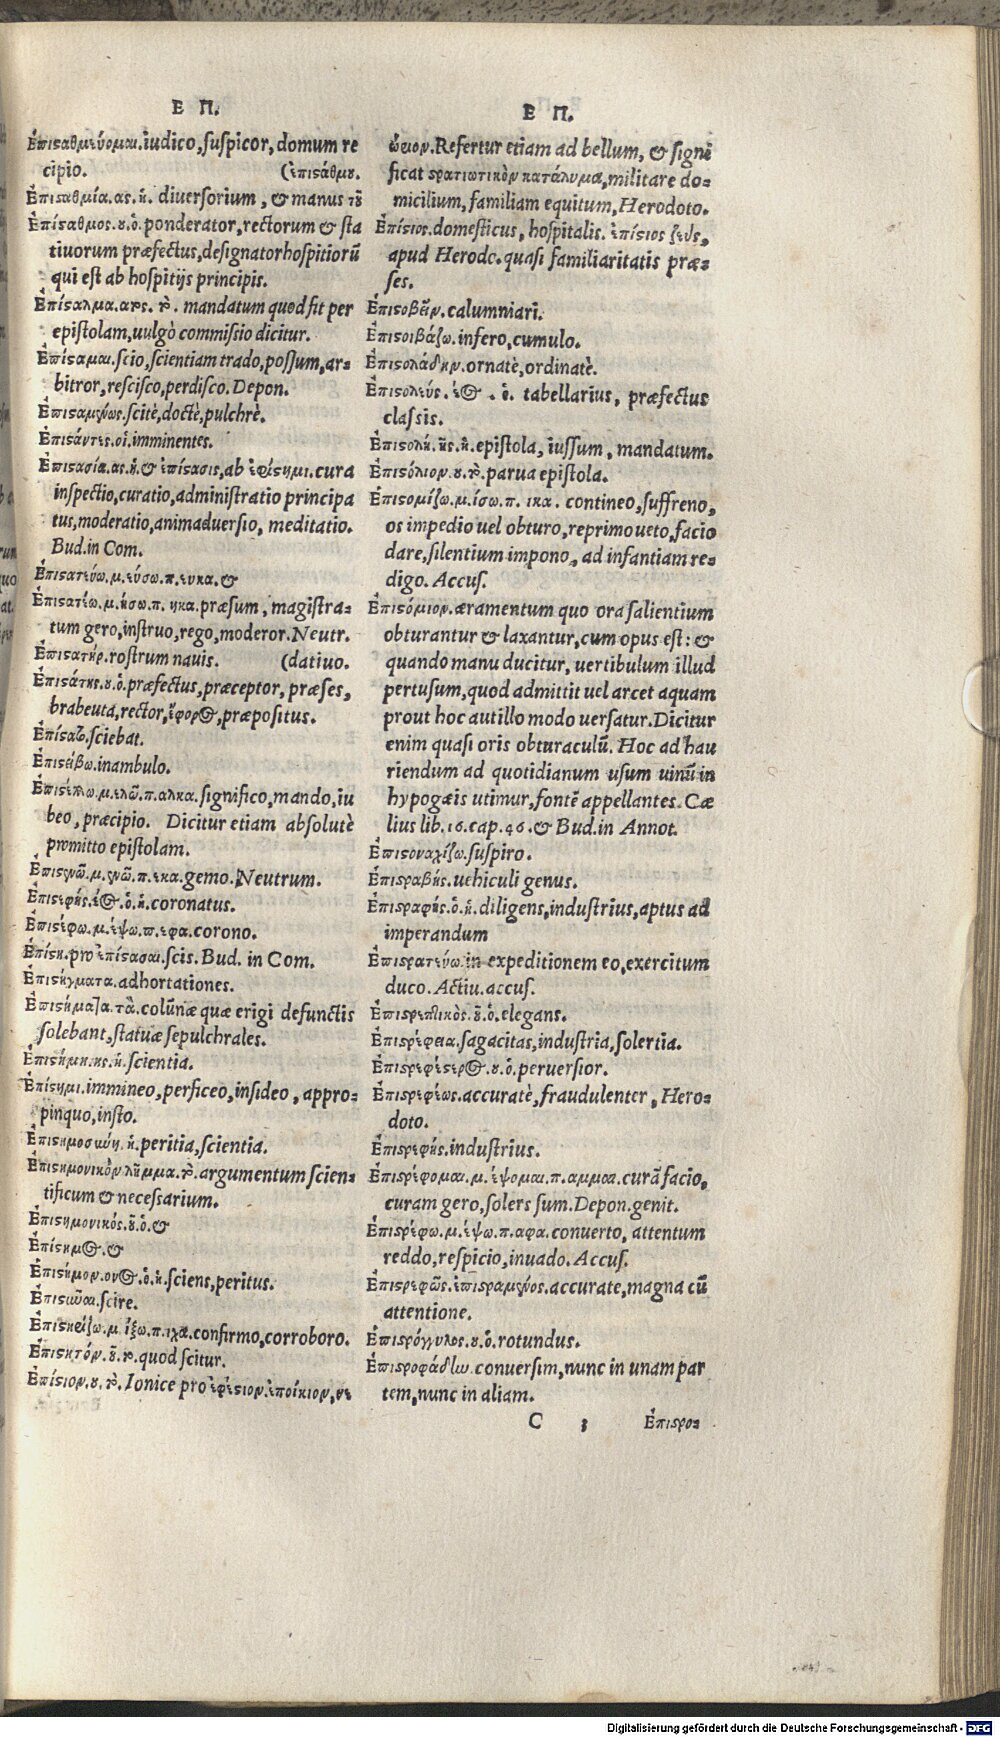 Ε Π.
Ἐπισαθμεύομαι. iudico, suspicor, domum re
cipio. (ἐπισάθμου.
Ἐπισαθμία. ας. ἡ. diuersorium, & manus τοῦ
Ἐπίσαθμος. ου. ὁ. ponderator, rectorum & sta
tiuorum præfectus, designator hospitiorū
qui est ab hospitijs principis.
Ἐπίσαλμα. ατος. τὸ. mandatum quod fit per
epistolam, uulgò commissio dicitur.
Ἐπίσαμαι. scio, scientiam trado, possum, ar-
bitror, rescisco, perdisco. Depon.
Ἐπισαμένως. scitè, doctè, pulchrè.
Ἐπισάντες. οἱ. imminentes.
Ἐπισασία. ας. ἡ. & ἐπίσασις, ab ἐφίσημι. cura
inspectio, curatio, administratio principa
tus, moderatio, animaduersio, meditatio.
Bud. in Com.
Ἐπισατεύω. μ. εύσω. π. ευκα. &
Ἐπισατέω. μ. ήσω. π. ηκα. præsum, magistra-
tum gero, instruo, rego, moderor. Neutr.
Ἐπισατήρ. rostrum nauis. (datiuo.
Ἐπισάτης. ου. ὁ. præfectus, præceptor, præses,
brabeuta, rector, ἔφορος, præpositus.
Ἐπίσατο. sciebat.
Ἐπισείβω. inambulo.
Ἐπισέλλω. μ. ελῶ. π. αλκα. significo, mando, iu
beo, præcipio. Dicitur etiam absolutè
promitto epistolam.
Ἐπισενῶ. μ. νῶ. π. εκα. gemo. Neutrum.
Ἐπισεφής. έος. ὁ. ἡ. coronatus.
Ἐπισέφω. μ. έψω. π. εφα. corono.
Ἐπίση. pro ἐπίσασαι. scis. Bud. in Com.
Ἐπισήγματα. adhortationes.
Ἐπισήματα. τὰ. colūnæ quæ erigi defunctis
solebant, statuæ sepulchrales.
Ἐπισήμη. ης. ἡ. scientia.
Ἐπίσημι. immineo, perficeo, insideo, appro-
pinquo, insto.
Ἐπισημοσύνη. ἡ. peritia, scientia.
Ἐπισημονικὸν λῆμμα. τὸ. argumentum scien-
tificum & necessarium.
Ἐπισημονικός. οῦ. ὁ. &
Ἐπίσημος. &
Ἐπισήμον. ονος. ὁ. ἡ. sciens, peritus.
scire.
Ἐπισηρίζω. μ. ίξω. π. ιχα. confirmo, corroboro.
Ἐπισητόν. οῦ. τὸ. quod scitur.
Ἐπίσιον. ου. τὸ. Ionice pro ἐφέσιον. ἐποίκιον,
Ε Π.
Refertur etiam ad bellum, & signi
ficat σρατιωτικὸν κατάλυμα, militare do-
micilium, familiam equitum, Herodoto.
Ἐπίσιος. domesticus, hospitalis. ἐπίσιος ζεύς,
apud Herodo. quasi familiaritatis præ-
ses.
Ἐπισοβεῖν. calumniari.
Ἐπισοιβάζω. infero, cumulo.
Ἐπισολάδην. ornatè, ordinatè.
Ἐπισολεύς. έος. ὁ. tabellarius, præfectus
classis.
Ἐπισολή. ῆς. ἡ. epistola, iussum, mandatum.
Ἐπισόλιον. ου. τὸ. parua epistola.
Ἐπισομίζω. μ. ίσω. π. ικα. contineo, suffreno,
os impedio uel obturo, reprimo ueto, facio
dare, silentium impono, ad infantiam re-
digo. Accus.
Ἐπισόμιον. æramentum quo ora salientium
obturantur & laxantur, cum opus est: &
quando manu ducitur, uertibulum illud
pertusum, quod admittit uel arcet aquam
prout hoc aut illo modo uersatur. Dicitur
enim quasi oris obturaculū. Hoc ad hau
riendum ad quotidianum usum uinū in
hypogæis utimur, fontē appellantes. Cæ
lius lib. 16. cap. 46. & Bud. in Annot.
Ἐπισοναχίζω. suspiro.
Ἐπισραβής. uehiculi genus.
Ἐπισραφής. ὁ. ἡ. diligens, industrius, aptus ad
imperandum
Ἐπισρατεύω. in expeditionem eo, exercitum
duco. Actiu. accus.
Ἐπισρεπτικὸς. οῦ. ὁ. elegans.
Ἐπισρέφεια. sagacitas, industria, solertia.
Ἐπισρεφέσερος. ου. ὁ. peruersior.
Ἐπισρεφέως. accuratè, fraudulenter, Hero-
doto.
Ἐπισρεφής. industrius.
Ἐπισρέφομαι. μ. έψομαι. π. αμμαι. curā facio,
curam gero, solers sum. Depon. genit.
Ἐπισρέφω. μ. έψω. π. αφα. conuerto, attentum
reddo, respicio, inuado. Accus.
Ἐπισρεφῶς. ἐπισραμένος. accurate, magna cū
attentione.
Ἐπισρόγγυλος. ου. ὁ. rotundus.
Ἐπισροφάδην. conuersim, nunc in unam par
tem, nunc in aliam.
C 3 Ἐπισρο-
Digitalisierung gefördert durch die Deutsche Forschungsgemeinschaft - DFG